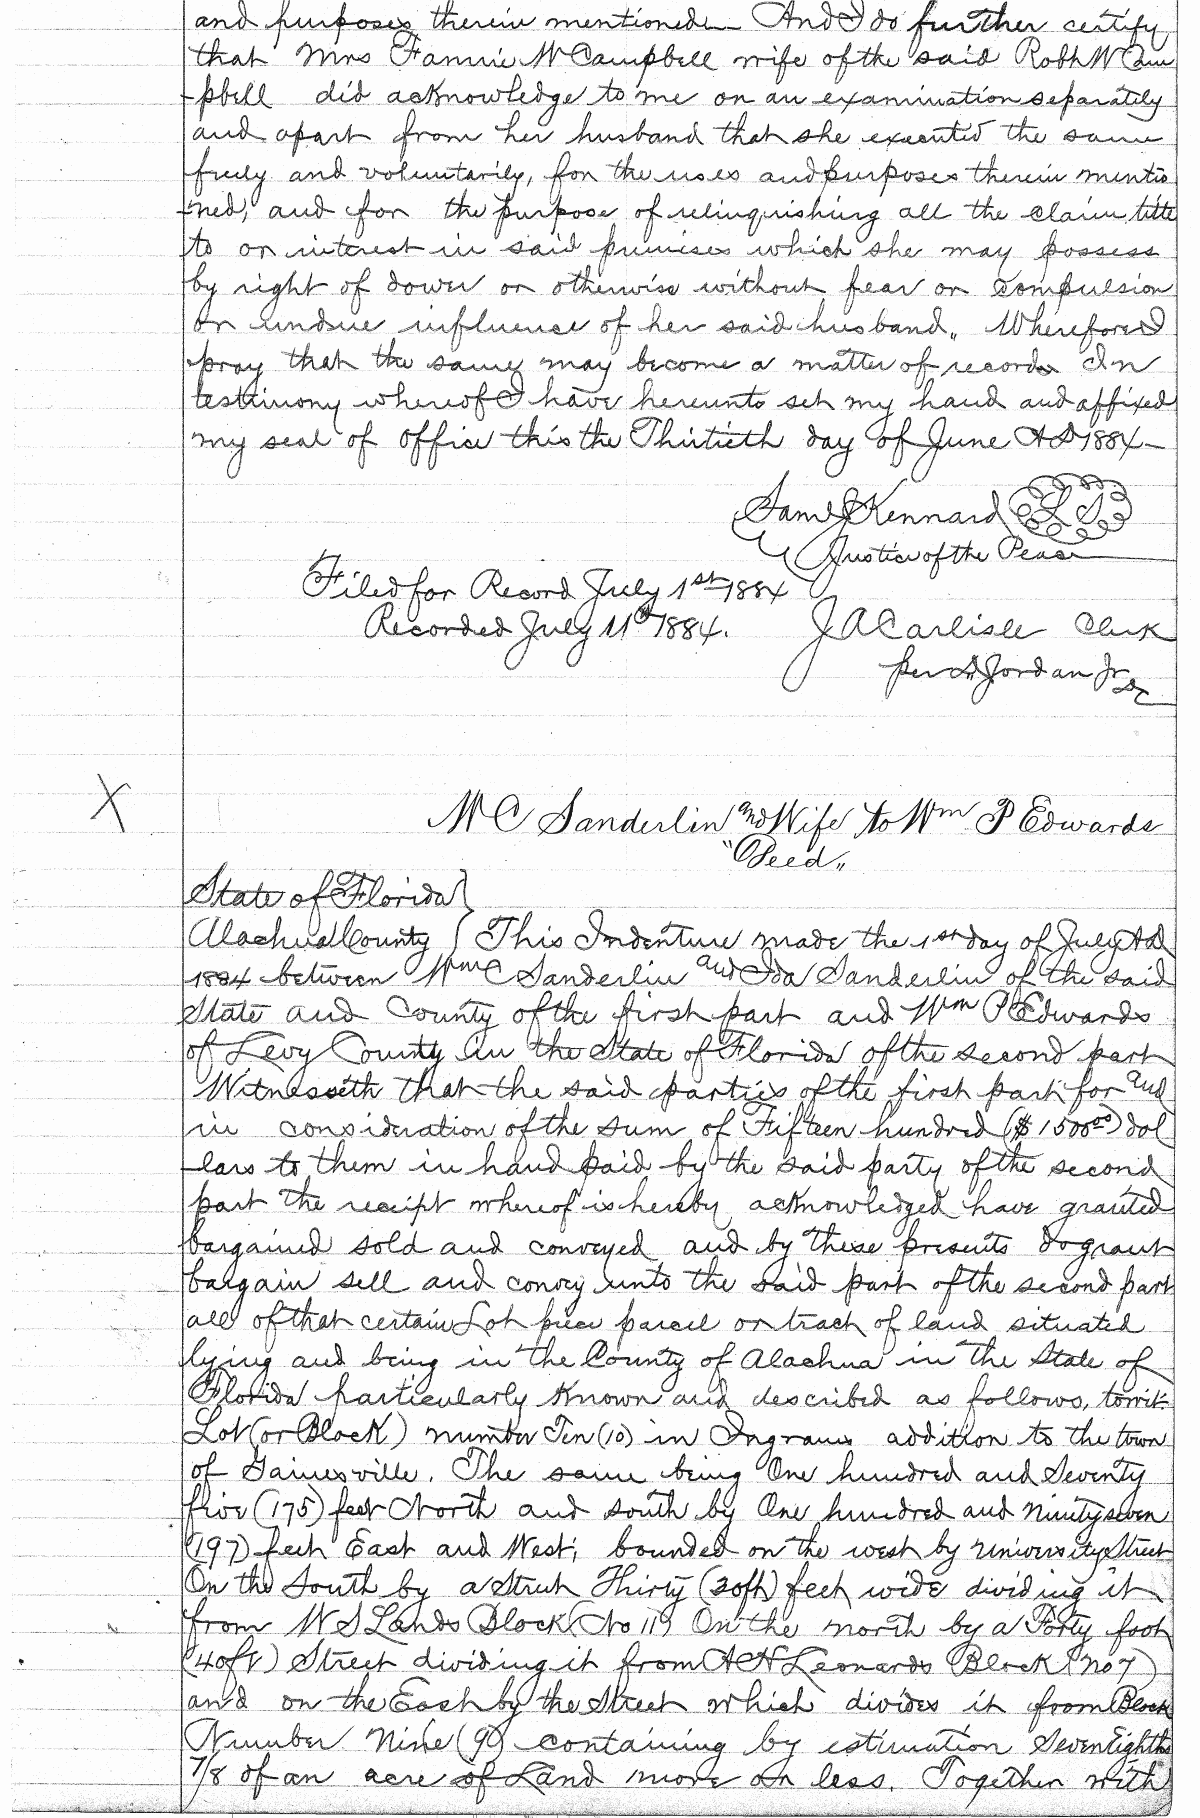 and purposes therein mentioned. And I do further certify
that Mrs Fannie W Campbell wife of the said Robt W Cam
-pbell did acknowledge to me on an examination separately
and apart from her husband that she executed the same
freely and voluntarily, for the uses and purposes therein mentio
-ned, and for the purpose of relinquishing all the claim title
to or interest in said premises which she may possess
by right of dower or otherwise without fear or compulsion
or undue influence of her said husband,, Wherefore I
pray that the same may become a matter of record. In
testimony whereof I have hereunto set my hand and affixed
my seal of office this the Thirtieth day of June A D 1884—
Saml J Kennard L S
Justice of the Peace
Filed for Record July 1st 1884
Recorded July 11th 1884. J A Carlisle Clerk
per D Jordan Jr
DC
X
W C Sanderlin and Wife to Wm P Edwards
"Deed,,
State of Florida }
Alachua County } This Indenture made the 1st day of July A d
1884 between Wm C Sanderlin and Ida Sanderlin of the said
State and County of the first part and Wm P Edwards
of Levy County in the State of Florida of the second part
Witnesseth that the said parties of the first part for and
in consideration of the sum of Fifteen hundred ($1500.00) dol
-lars to them in hand paid by the said party of the second
part the receipt whereof is hereby acknowledged have granted
bargained sold and conveyed and by these presents do grant
bargain sell and convey unto the said part of the second part
all of that certain Lot piece parcel or tract of land situated
lying and being in the County of Alachua in the State of
Florida particularly known and described as follows, towit:
Lot (or Block) number Ten (10) in Ingrams addition to the town
of Gainesville. The same being One hundred and Seventy
five (175) feet North and south by One hundred and Ninityseven
(197) feet East and West; bounded on the west by University Street
On the South by a Street Thirty (30ft) feet wide dividing it
from W S Lands Block (No 11) On the north by a Forty foot
(40ft) Street dividing it from A H Leonards Block (No 7)
and on the East by the Street which divides it from Block
Number Nine (9) containing by estimation Seven Eighths
7/8 of an acre of Land more or less. Together with